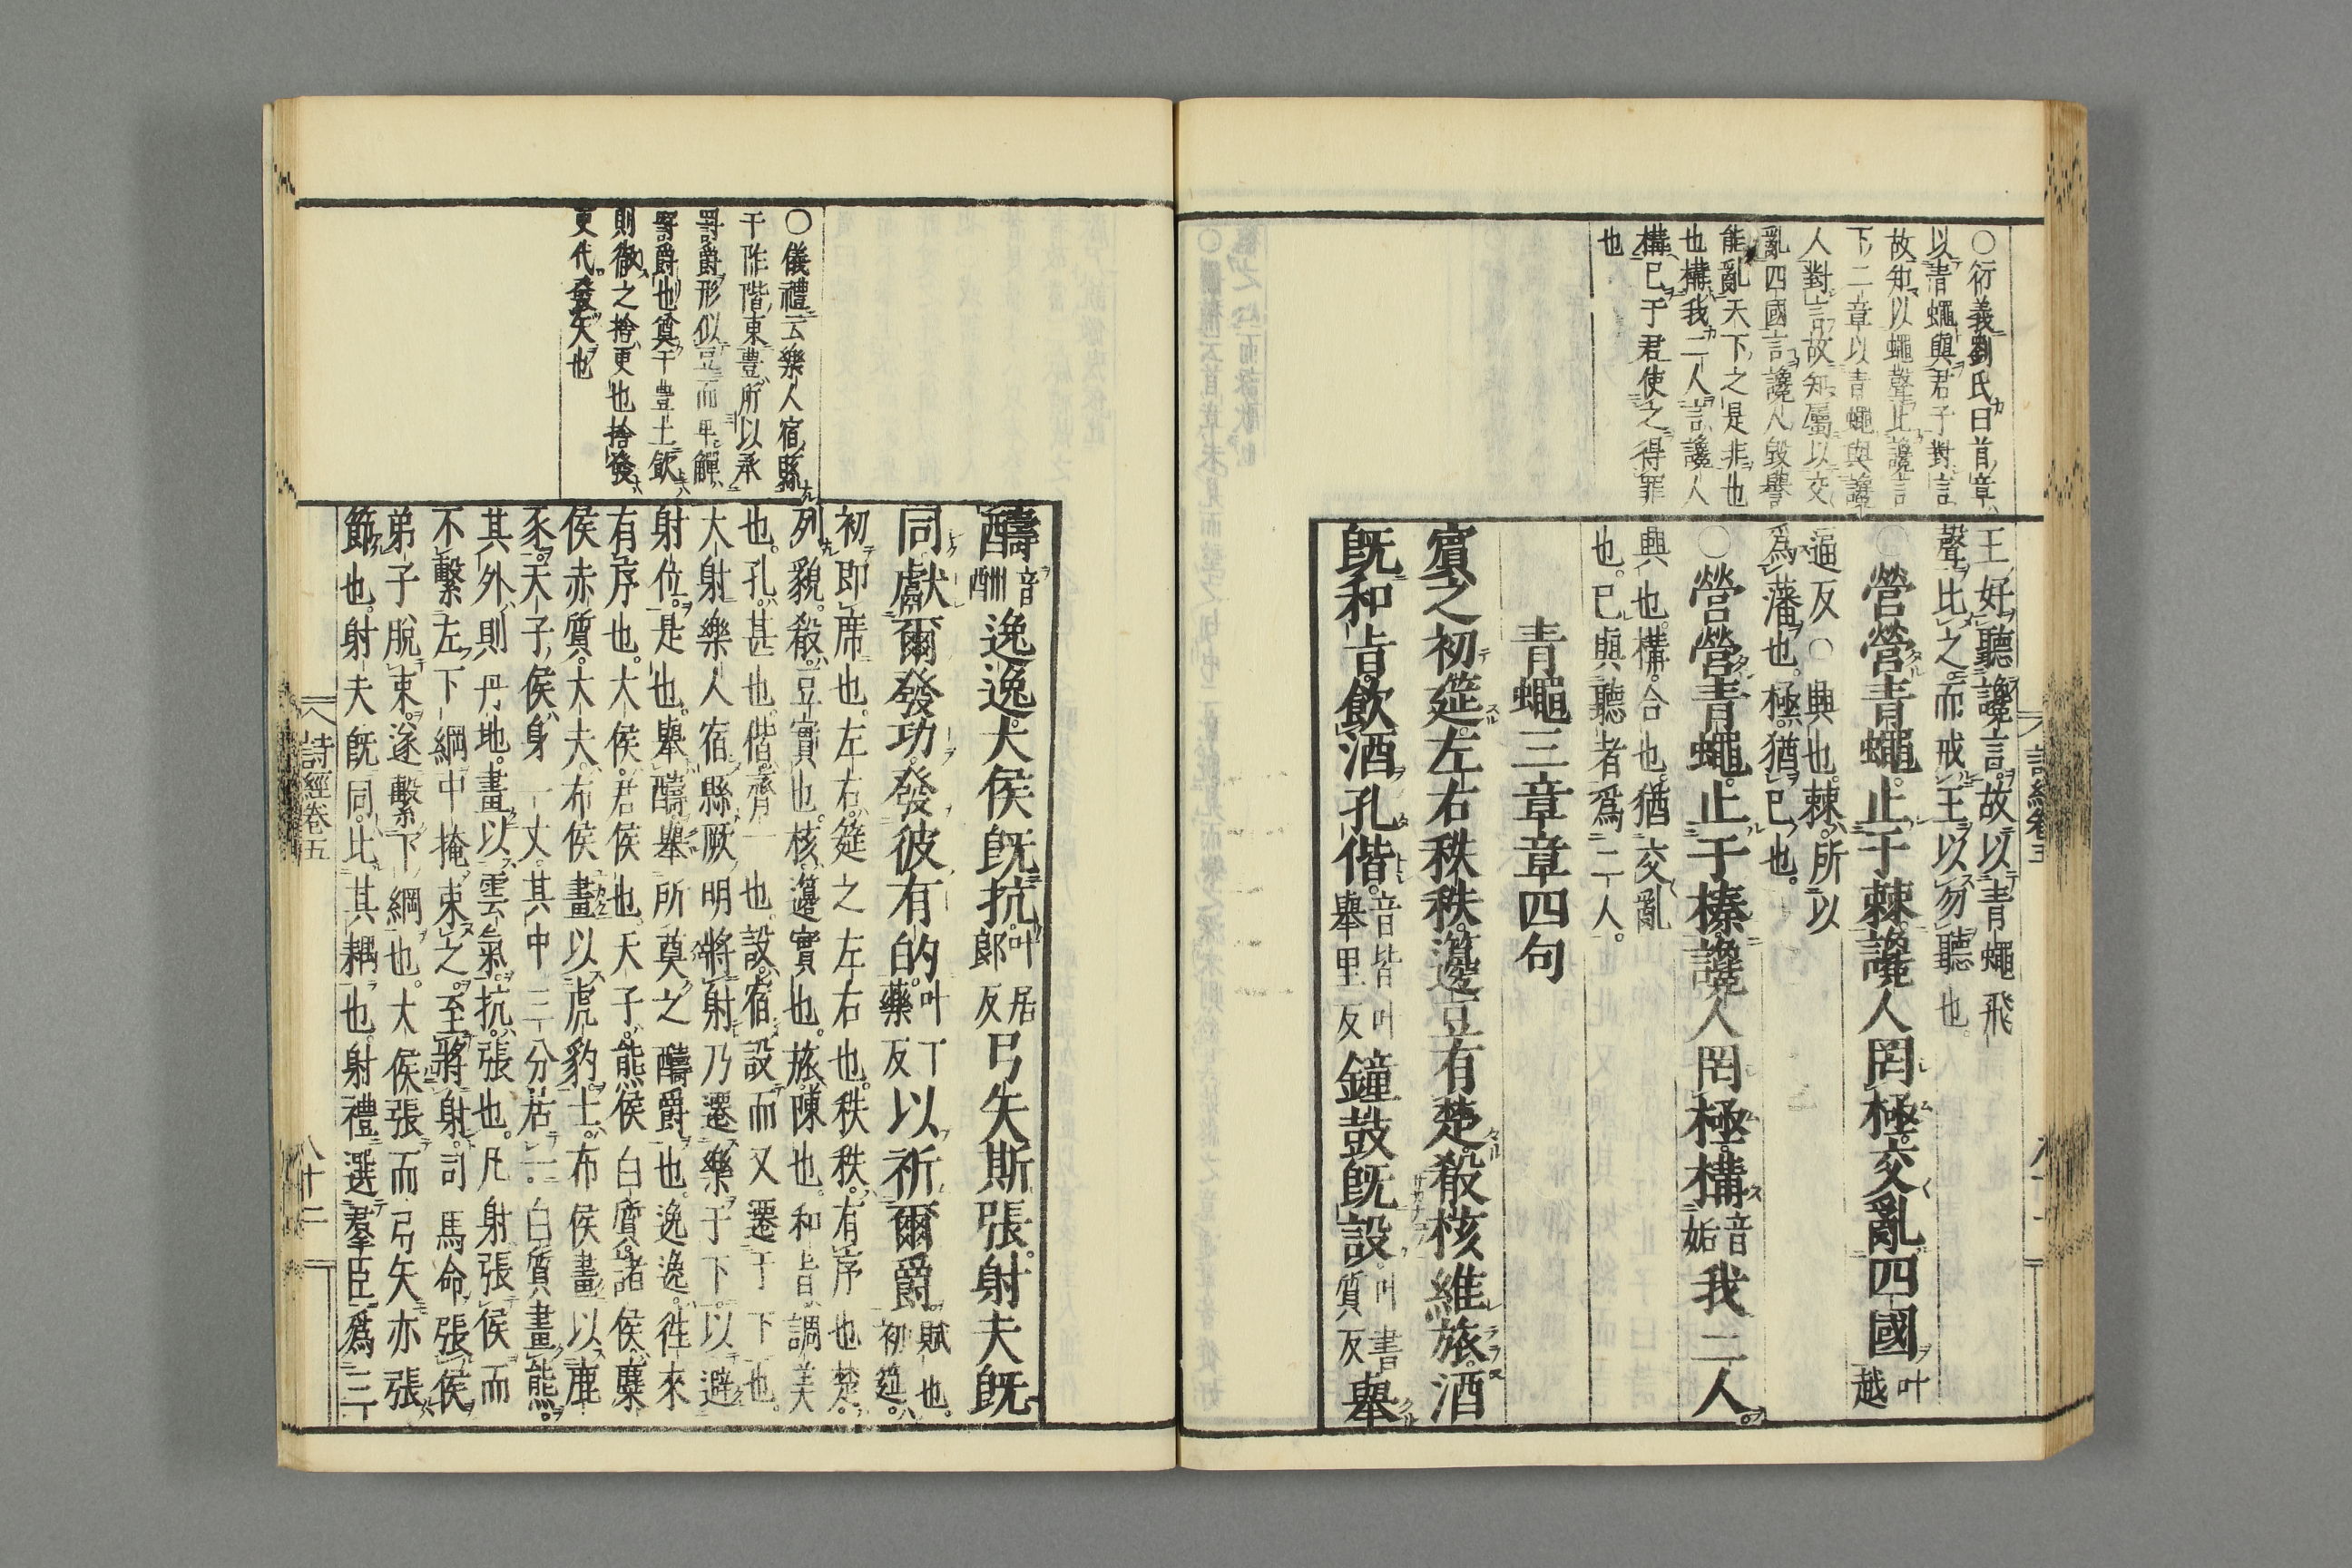 〇衍義劉氏曰首章
以青蠅與君子對言
故知以蠅聲比讒言
下二章以青蠅與讒
人對言故知屬以交
亂四國言讒人毀譽
能亂天下之是非也
也構我二人言讒人
構已于君使之得罪
也
王好聽讒言故以青蠅飛
聲比之而戒王以勿聽也
〇營營青蠅止于棘讒人罔極交亂四國叶越
逼反〇興也棘所以
爲藩也極猶已也
〇營營青蠅止于榛讒人罔極構音姤我二人
興也構合也猶交亂
也已與聽者爲二人
青蠅三章章四句
賔之初筵左右秩秩籩豆有楚殽核維旅酒
既和旨飲酒孔偕音皆叶舉里反鐘鼓既設叶書質反舉
詩經卷五
〇儀禮云樂人宿縣
于阼階東豊所以承
罸爵形似豆而卑觶
罸爵也奠于豊上飲
則徹之拾更也拾發
更代發矢也
醻音酬逸逸大侯既抗叶居郎反弓矢斯張射夫既
同獻爾發功發彼有的叶丁藥反以祈爾爵賦也初筵
初即席也左右筵之左右也秩秩有序也楚
列貌殽豆實也核籩實也旅陳也和旨調美
也孔甚也偕齊一也設宿設而又遷于下也
大射樂人宿縣厥明將射乃遷樂于下以避
射位是也舉醻舉所奠之醻爵也逸逸徃來
有序也大侯君侯也天子熊侯白質諸侯麋
侯赤質大夫布侯畫以虎豹士布侯畫以鹿
豕天子侯身一丈其中三分居一白質畫熊
其外則丹地畫以雲氣抗張也凡射張侯而
不繫左下綱中掩束之至將射司馬命張侯
弟子脫束遂繫下綱也大侯張而弓矢亦張
節也射夫既同比其耦也射禮選羣臣爲三
詩經卷五 八十二